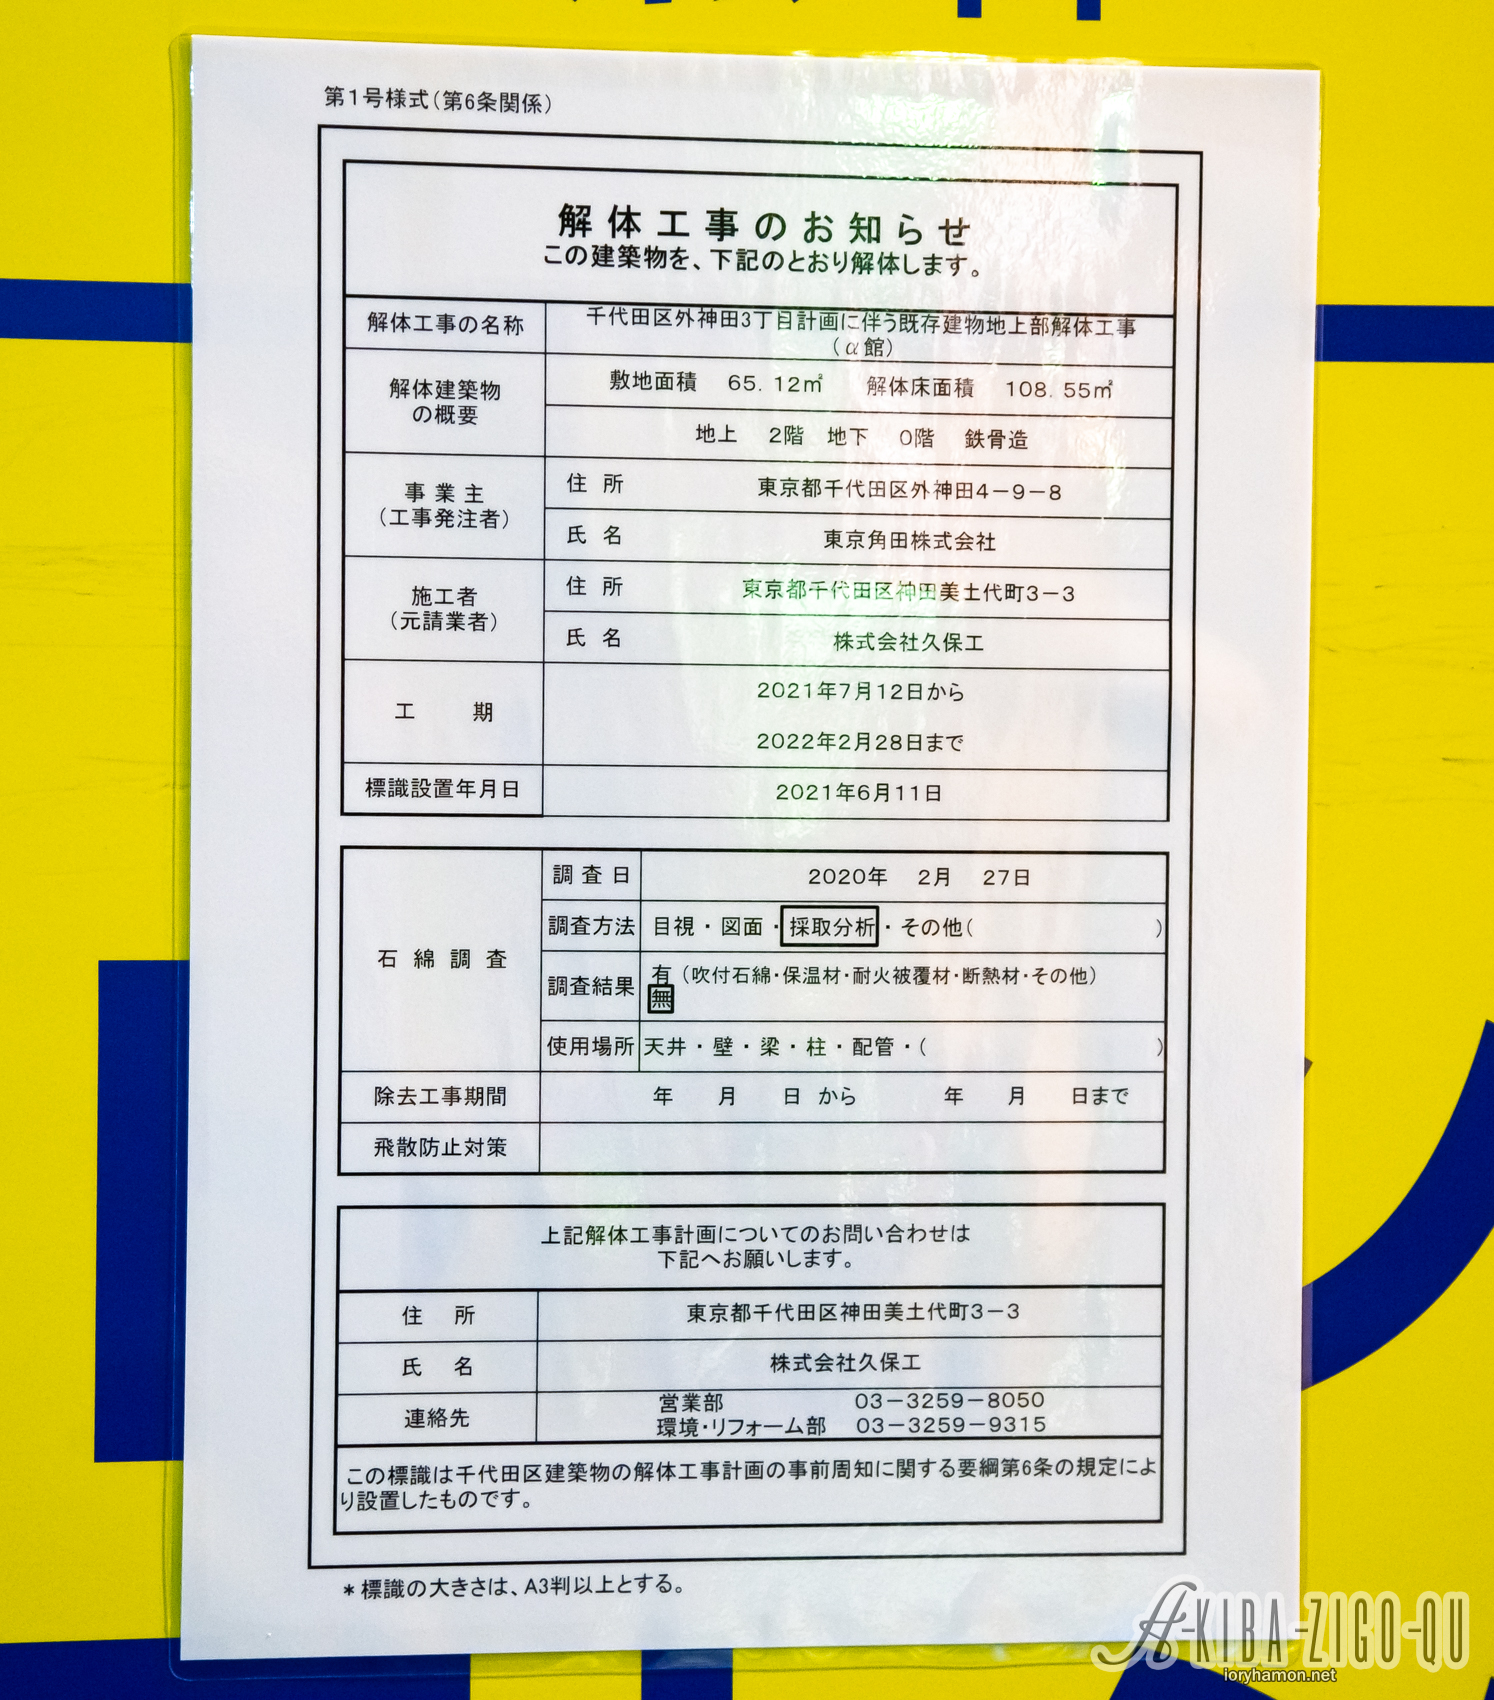 第1号様式(第6条関係)
解体工事のお知らせ
この建築物を、下記のとおり解体します。
解体工事の名称
千代田区外神田3丁目計画に伴う既存建物地上部解体工事
(α館)
解体建築物
の概要
敷地面積 65.12㎡ 解体床面積 108.55㎡
地上 2階 地下 0階 鉄骨造
事業主
(工事発注者)
住所 東京都千代田区外神田4-9-8
氏名 東京角田株式会社
施工者
(元請業者)
住所 東京都千代田区神田美土代町3-3
氏名 株式会社久保工
工期
2021年7月12日から
2022年2月28日まで
標識設置年月日 2021年6月11日
石綿調査
調査日 2020年 2月 27日
調査方法 目視・図面・採取分析・その他( )
調査結果
有(吹付石綿・保温材・耐火被覆材・断熱材・その他)
無
使用場所 天井・壁・梁・柱・配管・( )
除去工事期間 年 月 日 から 年 月 日まで
飛散防止対策
上記解体工事計画についてのお問い合わせは
下記へお願いします。
住所 東京都千代田区神田美土代町3-3
氏名 株式会社久保工
連絡先
営業部 03-3259-8050
環境・リフォーム部 03-3259-9315
この標識は千代田区建築物の解体工事計画の事前周知に関する要綱第6条の規定によ
り設置したものです。
*標識の大きさは、A3判以上とする。
A-KIBA-ZIGO-QU
ioryhamon.net